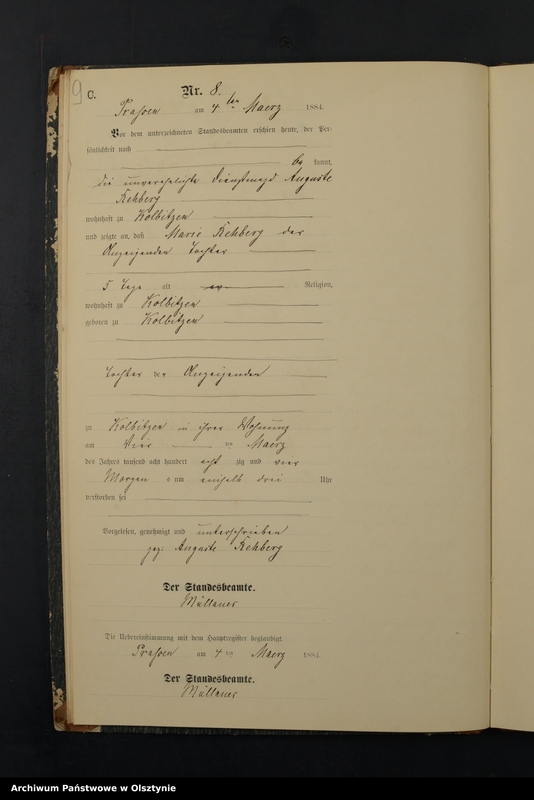 9
C.
Nr. 8.
Prassen am 4 ten Maerz 1884.
Vor dem unterzeichneten Standesbeamten erschien heute, der Per-
sönlichkeit nach
be kannt,
die unverehelichte Dienstmagd Auguste
Rehberg
wohnhaft zu Kolbitzen
und zeigte an, daß Marie Rehberg der
Anzeigenden Tochter
5 Tage alt ev Religion,
wohnhaft zu Kolbitzen
geboren zu Kolbitzen
Tochter der Anzeigenden
zu Kolbitzen in ihrer Wohnung
am Vier ten Maerz
des Jahres tausend acht hundert acht zig und vier
Morgens um einhalb drei Uhr
verstorben sei
Vorgelesen, genehmigt und unterschrieben
gez. Auguste Rehberg
Der Standesbeamte.
Die Uebereinstimmung mit dem Hauptregister beglaubigt
Prassen am 4 ten Maerz 1884.
Der Standesbeamte.
Archiwum Państwowe w Olsztynie